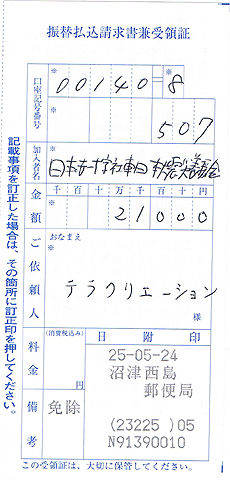 振替払込請求書兼受領証
口座記号番号
00140-8
507
加入者名
日本赤十字社東日本大震災義援金
金額
千百十万千百十円
21000
ご依頼人
おなまえ
テラクリエーション
様
料金
(消費税込み)
円
日附印
25-05-24
沼津西島
郵便局
(23225)05
N91390010
備考
免除
この受領証は、大切に保管してください。
記載事項を訂正した場合は、その箇所に訂正印を押してください。